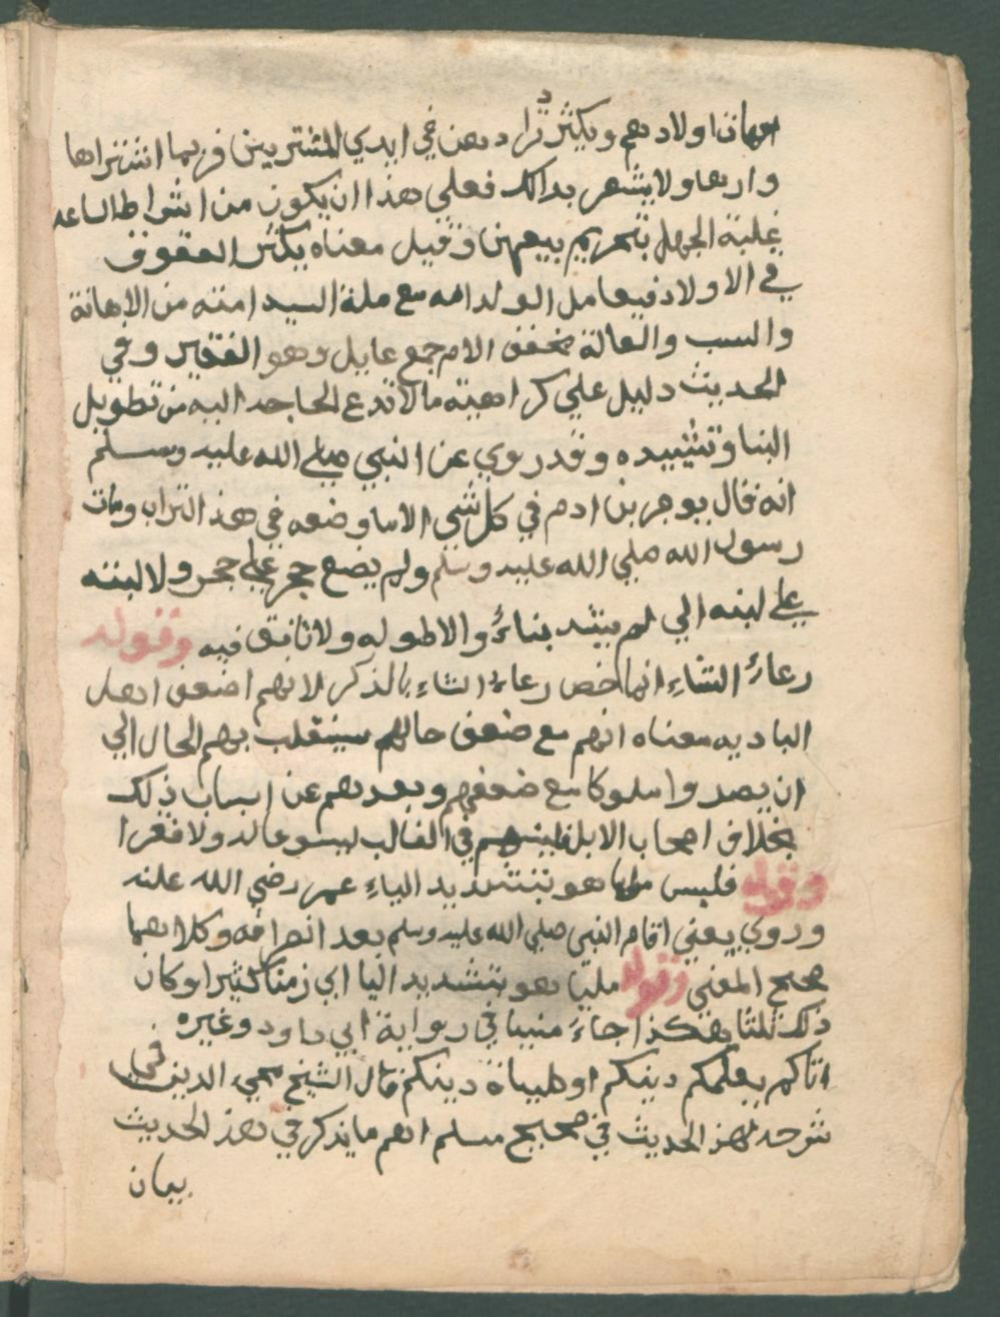 امهات اولادهم ويكثر تردادهن في ايدي المشترين فربما اشتراها
وارها ولا يشعر بذالك فعلي هذا ان يكون من اشراط الساعه
غلبة الجهل بتحريم بيعهن وقيل معناه يكثر العقوق
في الاولاد فيعامل الولد امه معاملة السيد امته من الاهانة
والسب والعالة مخفف الام جمع عايل وهو الفقير وفي
الحديث دليل علي كراهية ما لا تدع الحاجه اليه من تطويل
البنا وتشييده وقد روي عن النبي صلي الله عليه وسلم
انه قال يوجر بن ادم في كل شي الا ما وضعه في هذ التراب ومات
رسول الله صلي الله عليه وسلم ولم يضع حجر علي حجر ولا لبنته
علي لبنه الي لم يشد بناءُ والا طوله ولا تانق فيه وقوله
رعاءُ الشاءِ انما خص رعاءُ الشاءِ بالذكر لانهم اضعف اهل
الباديه معناه انهم مع ضعف حالهم سينقلب بهم الحال الي
ان يصدوا ملوكا مع ضعفهم وبعدهم عن اسباب ذلك
بخلاف اصحاب الابل في الغالب ليسو عاله ولا فقرا
وقوله فلبس مليا هو بتشديد الياءِ عمر رضي الله عنه
وروي يعني اقام النبي صلي الله عليه وسلم بعد انصرافه وكلاهما
صحيح المعني وقوله مليا هو بتشديد اليا اي زمنا كثيرا وكان
ذلك ثلثا هكذا جاءَ مبينا في رواية ابي داود وغيره
اتاكم يعلمكم دينكم او دينكم قال الشيخ محي الدين في
شرحه لهذ الحديث في صحيح مسلم اهم ما يذكر في هذ الحديث
بيان